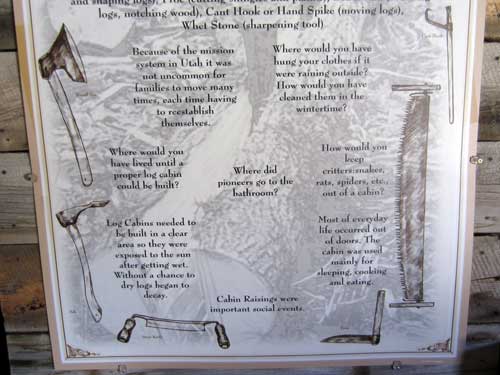 and shaping logs), Froe (cutting shingles and
logs, notching wood), Cant Hook or Hand Spike (moving logs),
Whet Stone (sharpening tool)
Because of the mission
system in Utah it was
not uncommon for
families to move many
times, each time having
to reestablish
themselves.
Where would you have
hung your clothes if it
were raining outside?
How would you have
cleaned them in the
wintertime?
Where would you
have lived until a
proper log cabin
could be built?
Where did
pioneers go to the
bathroom?
How would you
keep
critters:snakes,
rats, spiders, etc.,
out of a cabin?
Log Cabins needed to
be built in a clear
area so they were
exposed to the sun
after getting wet.
Without a chance to
dry logs began to
decay.
Most of everyday
life occurred out
of doors. The
cabin was used
mainly for
sleeping, cooking
and eating.
Cabin Raisings were
important social events.